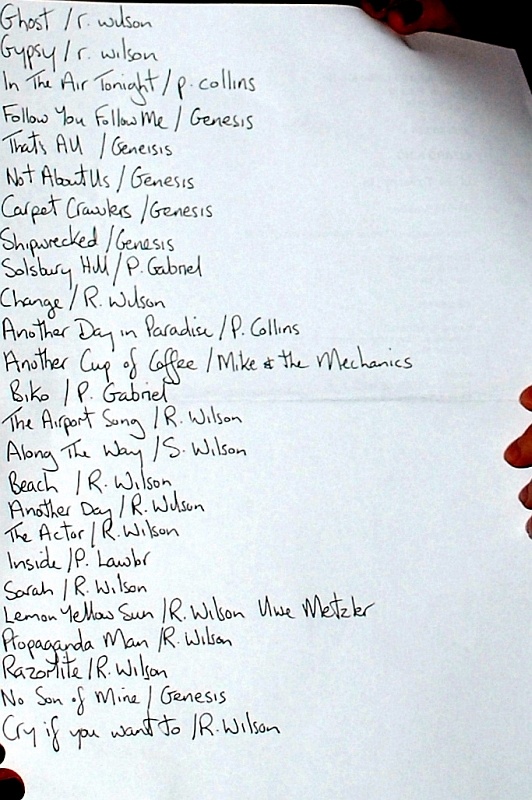 Ghost / r. wilson
Gypsy / r. wilson
In The Air Tonight / p. collins
Follow You Follow Me / Genesis
Thats All / Geneisis
Not About Us / Genesis
Carpet Crawlers / Genesis
Shipwrecked / Genesis
Solsbury Hill / P. Gabriel
Change / R. Wilson
Another Day in Paradise / P. Collins
Another Cup of Coffee / Mike & the Mechanics
Biko / P. Gabriel
The Airport Song / R. Wilson
Along The Way / S. Wilson
Beach / R. Wilson
Another Day / R. Wilson
The Actor / R. Wilson
Inside / P. Lawlor
Sarah / R. Wilson
Lemon Yellow Sun / R. Wilson Uwe Metzler
Propaganda Man / R. Wilson
Razorlite / R. Wilson
No Son of Mine / Genesis
Cry if you want to / R. Wilson